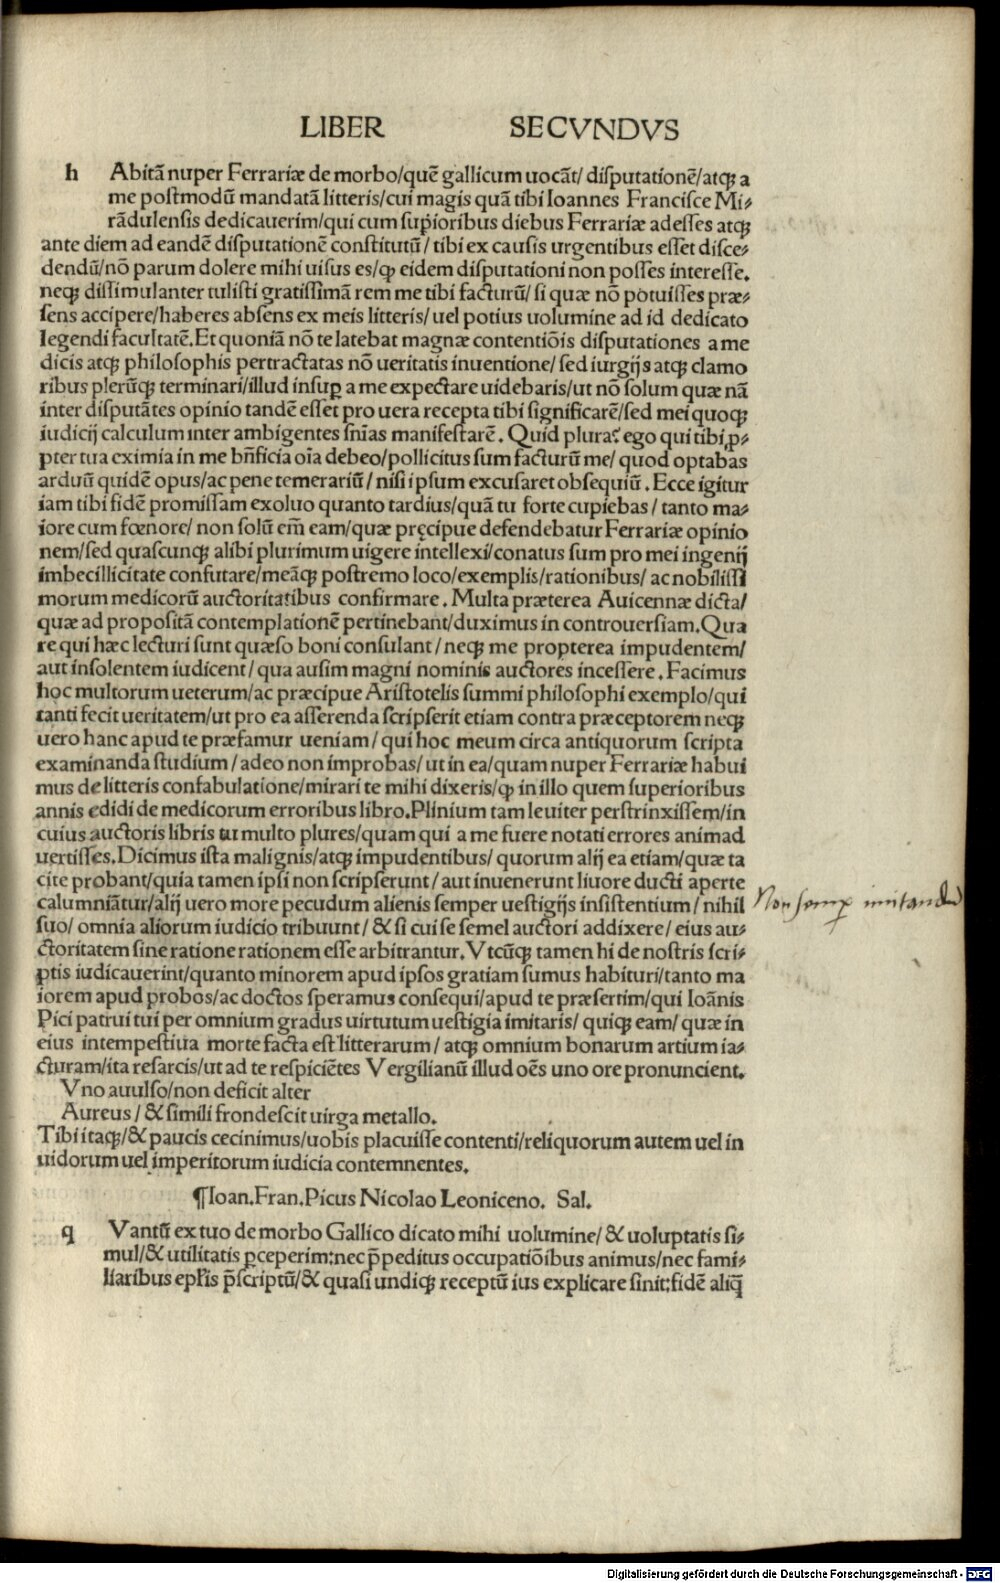 LIBER SECVNDVS
h Abitā nuper Ferrariæ de morbo/quē gallicum uocāt/ disputationē/atqꝫ a
me postmodū mandatā litteris/cui magis quā tibi Ioannes Francisce Mi⸗
rādulensis dedicauerim/qui cum suꝑioribus diebus Ferrariæ adesses atqꝫ
ante diem ad eandē disputationē constitutū/ tibi ex causis urgentibus esset disce⸗
dendū/nō parum dolere mihi uisus es/ꝙ eidem disputationi non posses interesse.
neqꝫ dissimulanter tulisti gratissimā rem me tibi facturū/ si quæ nō potuisses præ⸗
sens accipere/haberes absens ex meis litteris/ uel potius uolumine ad id dedicato
legendi facultatē. Et quoniā nō te latebat magnæ contentiōis disputationes a me
dicis atqꝫ philosophis pertractatas nō ueritatis inuentione/ sed iurgijs atqꝫ clamo
ribus plerūqꝫ terminari/illud insuꝑ a me expectare uidebaris/ut nō solum quæ nā
inter disputātes opinio tandē esset pro uera recepta tibi significarē/sed mei quoqꝫ
iudicij calculum inter ambigentes sn̄ias manifestarē. Quid plura? ego qui tibi ꝓ⸗
pter tua eximia in me bn̄ficia oīa debeo/pollicitus sum facturū me/ quod optabas
arduū quidē opus/ac pene temerariū/ nisi ipsum excusaret obsequiū. Ecce igitur
iam tibi fidē promissam exoluo quanto tardius/quā tu forte cupiebas/ tanto ma⸗
iore cum fœnore/ non solū em̄ eam/quæ pręcipue defendebatur Ferrariæ opinio
nem/sed quascunqꝫ alibi plurimum uigere intellexi/conatus sum pro mei ingenij
imbecillicitate confutare/meāqꝫ postremo loco/exemplis/rationibus/ ac nobilissi
morum medicorū auctoritatibus confirmare. Multa præterea Auicennæ dicta/
quæ ad propositā contemplationē pertinebant/duximus in controuersiam. Qua
re qui hæc lecturi sunt quæso boni consulant/ neqꝫ me propterea impudentem/
aut insolentem iudicent/ qua ausim magni nominis auctores incessere. Facimus
hoc multorum ueterum/ac præcipue Aristotelis summi philosophi exemplo/qui
tanti fecit ueritatem/ut pro ea asserenda scripserit etiam contra præceptorem neqꝫ
uero hanc apud te præfamur ueniam/ qui hoc meum circa antiquorum scripta
examinanda studium/ adeo non improbas/ ut in ea/quam nuper Ferrariæ habui
mus de litteris confabulatione/mirari te mihi dixeris/ꝙ in illo quem superioribus
annis edidi de medicorum erroribus libro. Plinium tam leuiter perstrinxissem/in
cuius auctoris libris tu multo plures/quam qui a me fuere notati errores animad
uertisses. Dicimus ista malignis/atqꝫ impudentibus/ quorum alij ea etiam/quæ ta
cite probant/quia tamen ipsi non scripserunt/ aut inuenerunt liuore ducti aperte
calumniātur/alij uero more pecudum alienis semper uestigijs insistentium/ nihil
Non semꝑ imitandū
suo/ omnia aliorum iudicio tribuunt/ & si cui se semel auctori addixere/ eius au⸗
ctoritatem sine ratione rationem esse arbitrantur. Vtcūqꝫ tamen hi de nostris scri⸗
ptis iudicauerint/quanto minorem apud ipsos gratiam sumus habituri/tanto ma
iorem apud probos/ac doctos speramus consequi/apud te præsertim/qui Ioānis
Pici patrui tui per omnium gradus uirtutum uestigia imitaris/ quiqꝫ eam/ quæ in
eius intempestiua morte facta est litterarum/ atqꝫ omnium bonarum artium ia⸗
cturam/ita resarcis/ut ad te respiciētes Vergilianū illud oēs uno ore pronuncient.
Vno auulso/non deficit alter
Aureus/ & simili frondescit uirga metallo.
Tibi itaqꝫ/& paucis cecinimus/uobis placuisse contenti/reliquorum autem uel in
uidorum uel imperitorum iudicia contemnentes.
¶Ioan. Fran. Picus Nicolao Leoniceno. Sal.
q Vantū ex tuo de morbo Gallico dicato mihi uolumine/ & uoluptatis si⸗
mul/& utilitatis ꝑceperim:nec p̄peditus occupatiōibus animus/nec fami⸗
liaribus epl̄is p̄scriptū/& quasi undiqꝫ receptū ius explicare sinit:fidē aliq̄
Digitalisierung gefördert durch die Deutsche Forschungsgemeinschaft - DFG